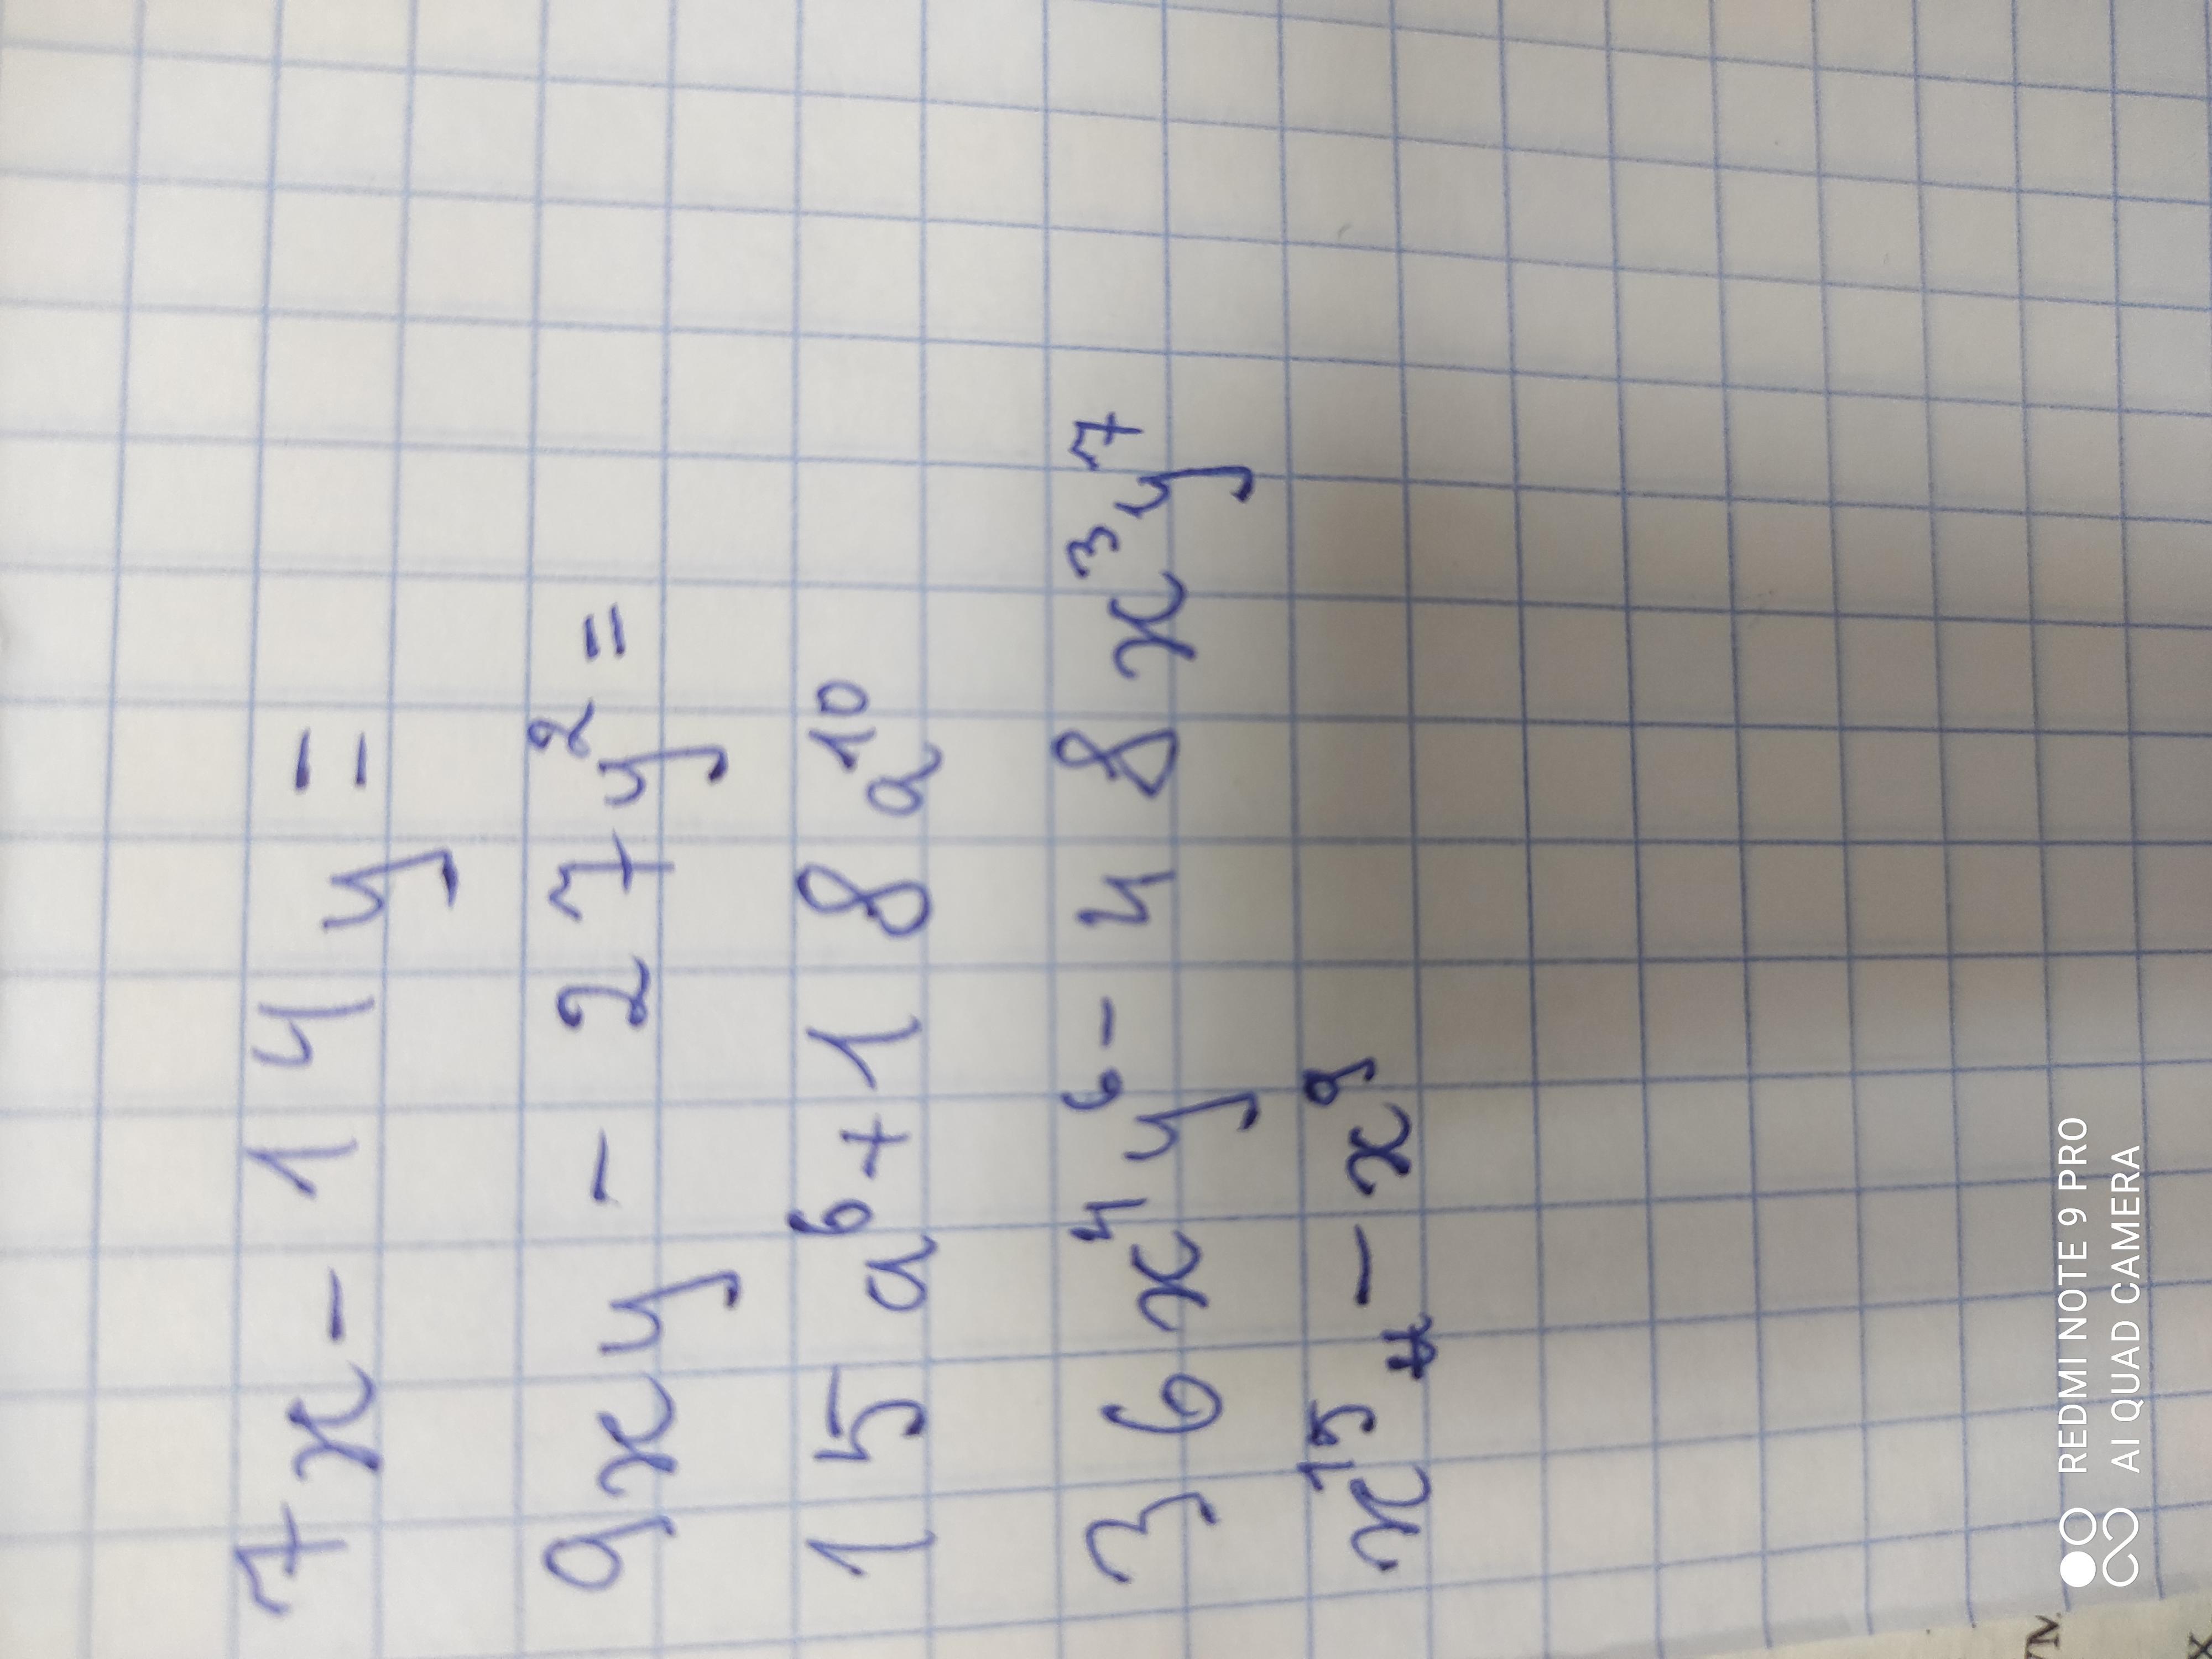 7x - 14y =
9xy - 27y² =
15a⁶ + 18a¹⁰
36x⁴y⁶ - 48x³y⁷
x¹⁵ - x⁹
REDMI NOTE 9 PRO
AI QUAD CAMERA